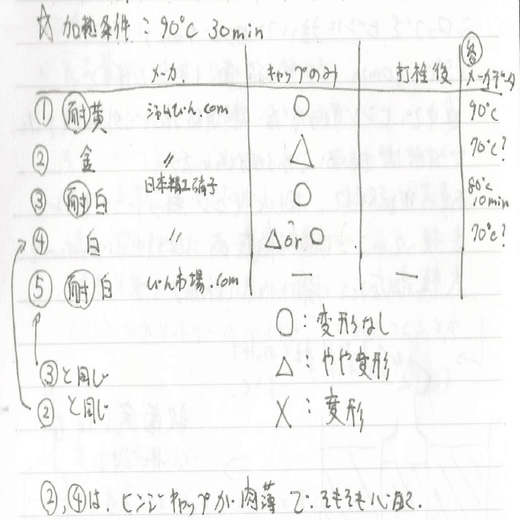 ☆ 加熱条件：90℃ 30min
メーカ キャップのみ 打栓後 各メーカデータ
① 耐黄 ふらんびん.com ○ 90℃
② 金 〃 △ 70℃?
③ 耐白 日本精工硝子 ○ 80℃ 10min
④ 白 〃 △or○ 70℃?
⑤ 耐白 びん市場.com — —
○：変形なし
③と同じ
△：やや変形
②と同じ
×：変形
②,④は、ヒンジキャップが肉薄で、そもそも心配.